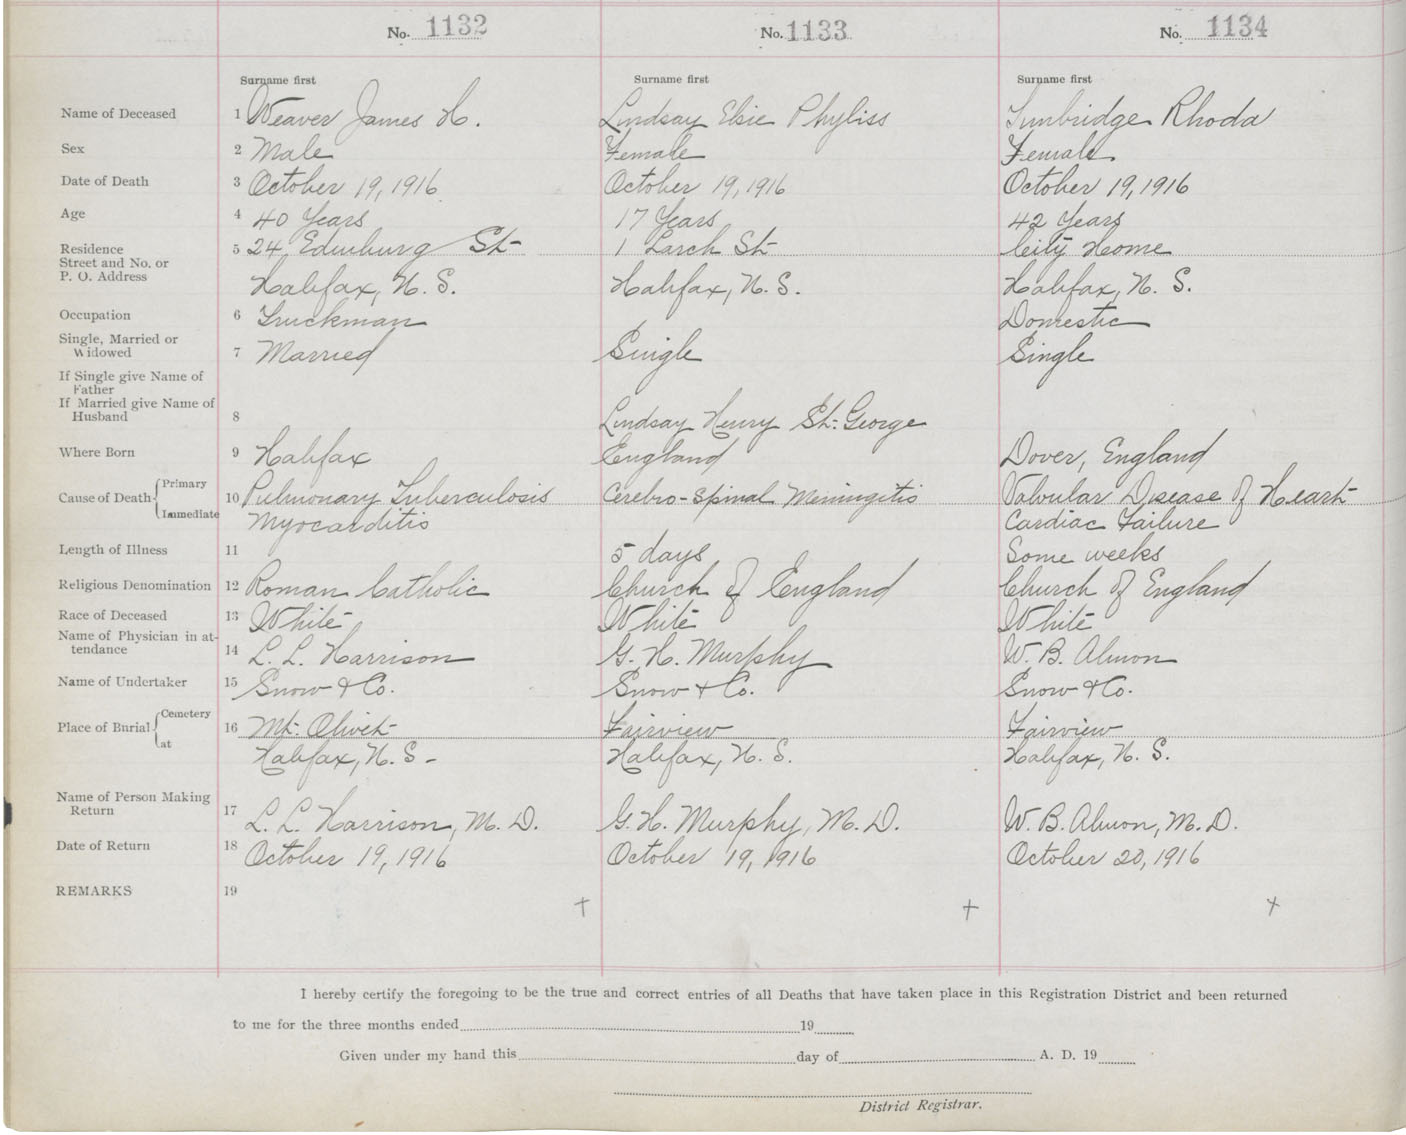 No. 1132 No. 1133 No. 1134
Surname first Surname first Surname first
Name of Deceased 1 Weaver James H. Lindsay Elsie Phyliss Tunbridge Rhoda
Sex 2 Male Female Female
Date of Death 3 October 19, 1916 October 19, 1916 October 19, 1916
Age 4 40 Years 17 Years 42 Years
Residence 5 24 Edinburg St 1 Larch St City Home
Street and No. or
P. O. Address Halifax, N. S. Halifax, N. S. Halifax, N. S.
Occupation 6 Truckman Domestic
Single, Married or
Widowed 7 Married Single Single
If Single give Name of
Father
If Married give Name of
Husband 8 Lindsay Henry St. George
Where Born 9 Halifax England Dover, England
Cause of Death Primary 10 Pulmonary Tuberculosis Cerebro-Spinal Meningitis Valvular Disease of Heart
Immediate Myocarditis Cardiac Failure
Length of Illness 11 5 days Some weeks
Religious Denomination 12 Roman Catholic Church of England Church of England
Race of Deceased 13 White White White
Name of Physician in at-
tendance 14 L. L. Harrison G. H. Murphy W. B. Almon
Name of Undertaker 15 Snow & Co. Snow & Co. Snow & Co.
Place of Burial Cemetery 16 Mt. Olivet Fairview Fairview
at Halifax, N. S. Halifax, N. S. Halifax, N. S.
Name of Person Making
Return 17 L. L. Harrison, M. D. G. H. Murphy, M. D. W. B. Almon, M. D.
Date of Return 18 October 19, 1916 October 19, 1916 October 20, 1916
REMARKS 19
I hereby certify the foregoing to be the true and correct entries of all Deaths that have taken place in this Registration District and been returned
to me for the three months ended 19
Given under my hand this day of A. D. 19
District Registrar.